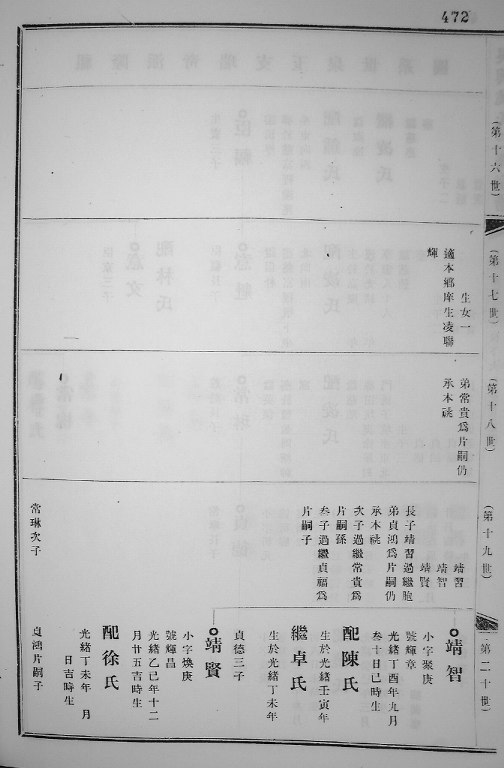 472
(第十六世)
(第十七世)
生女一
適本鄉庠生凌聯
輝
(第十八世)
弟常貴為片嗣仍
承本祧
(第十九世)
靖習
靖智
靖賢
長子靖習過繼胞
弟貞鴻為片嗣仍
承本祧
次子過繼常貴為
片嗣孫
叁子過繼貞福為
片嗣子
常琳次子
(第二十世)
靖智
小字聚庚
號輝章
光緒丁酉年九月
叁十日巳時生
配陳氏
生於光緒壬寅年
繼卓氏
生於光緒丁未年
貞德三子
靖賢
小字煥庚
號輝昌
光緒乙巳年十二
月廿五吉時生
配徐氏
光緒丁未年 月
日吉時生
貞鴻片嗣子